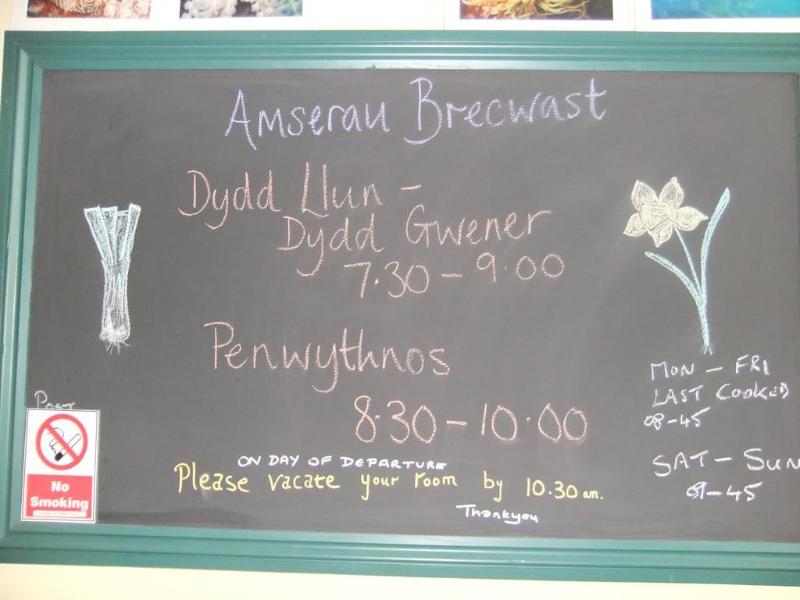 Amserau Brecwast
Dydd Llun -
Dydd Gwener
7.30 - 9.00
Penwythnos
8.30 - 10.00
MON - FRI
LAST COOKED
08-45
SAT - SUN
09-45
ON DAY OF DEPARTURE
Please vacate your room by 10.30 am.
Thankyou
No
Smoking